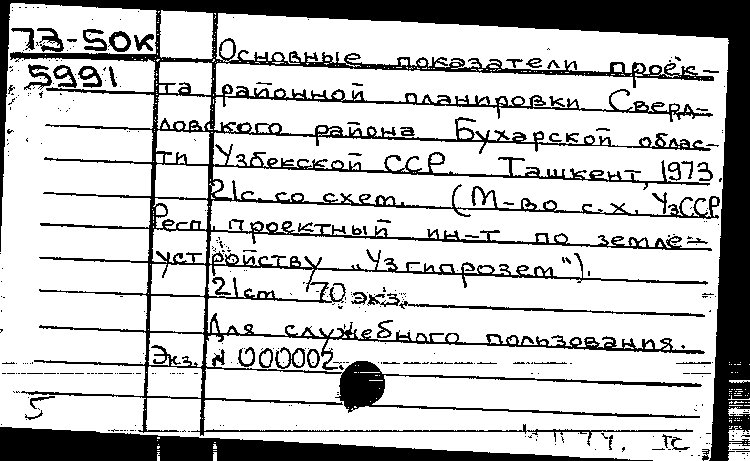 73-50к
5991
Основные показатели проек-
та районной планировки Сверд-
ловского района Бухарской облас-
ти Узбекской ССР. Ташкент, 1973.
21с. со схем. (М-во с.х. УзССР
Респ. проектный ин-т по земле-
устройству „Узгипрозем").
21см 70 экз.
Для служебного пользования.
Экз. № 000002.
5